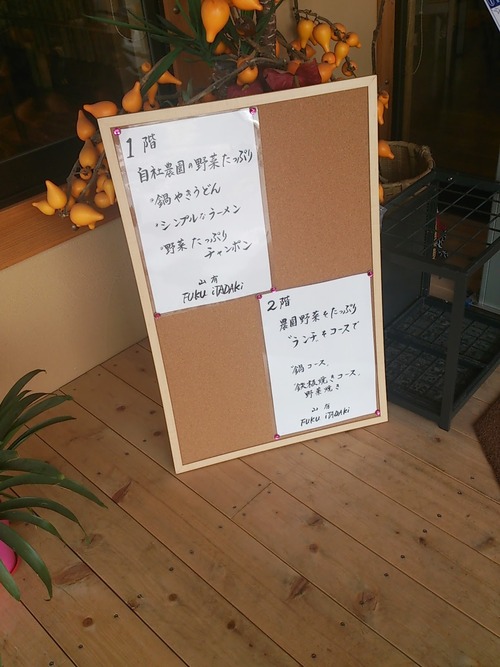 1階
自社農園の野菜たっぷり
・鍋やきうどん
・シンプルなラーメン
・野菜たっぷり
チャンポン
FUKU iTADAKi
2階
農園野菜をたっぷり
ランチをコースで
・鍋コース
・鉄板焼きコース
野菜焼き
FUKU iTADAKi